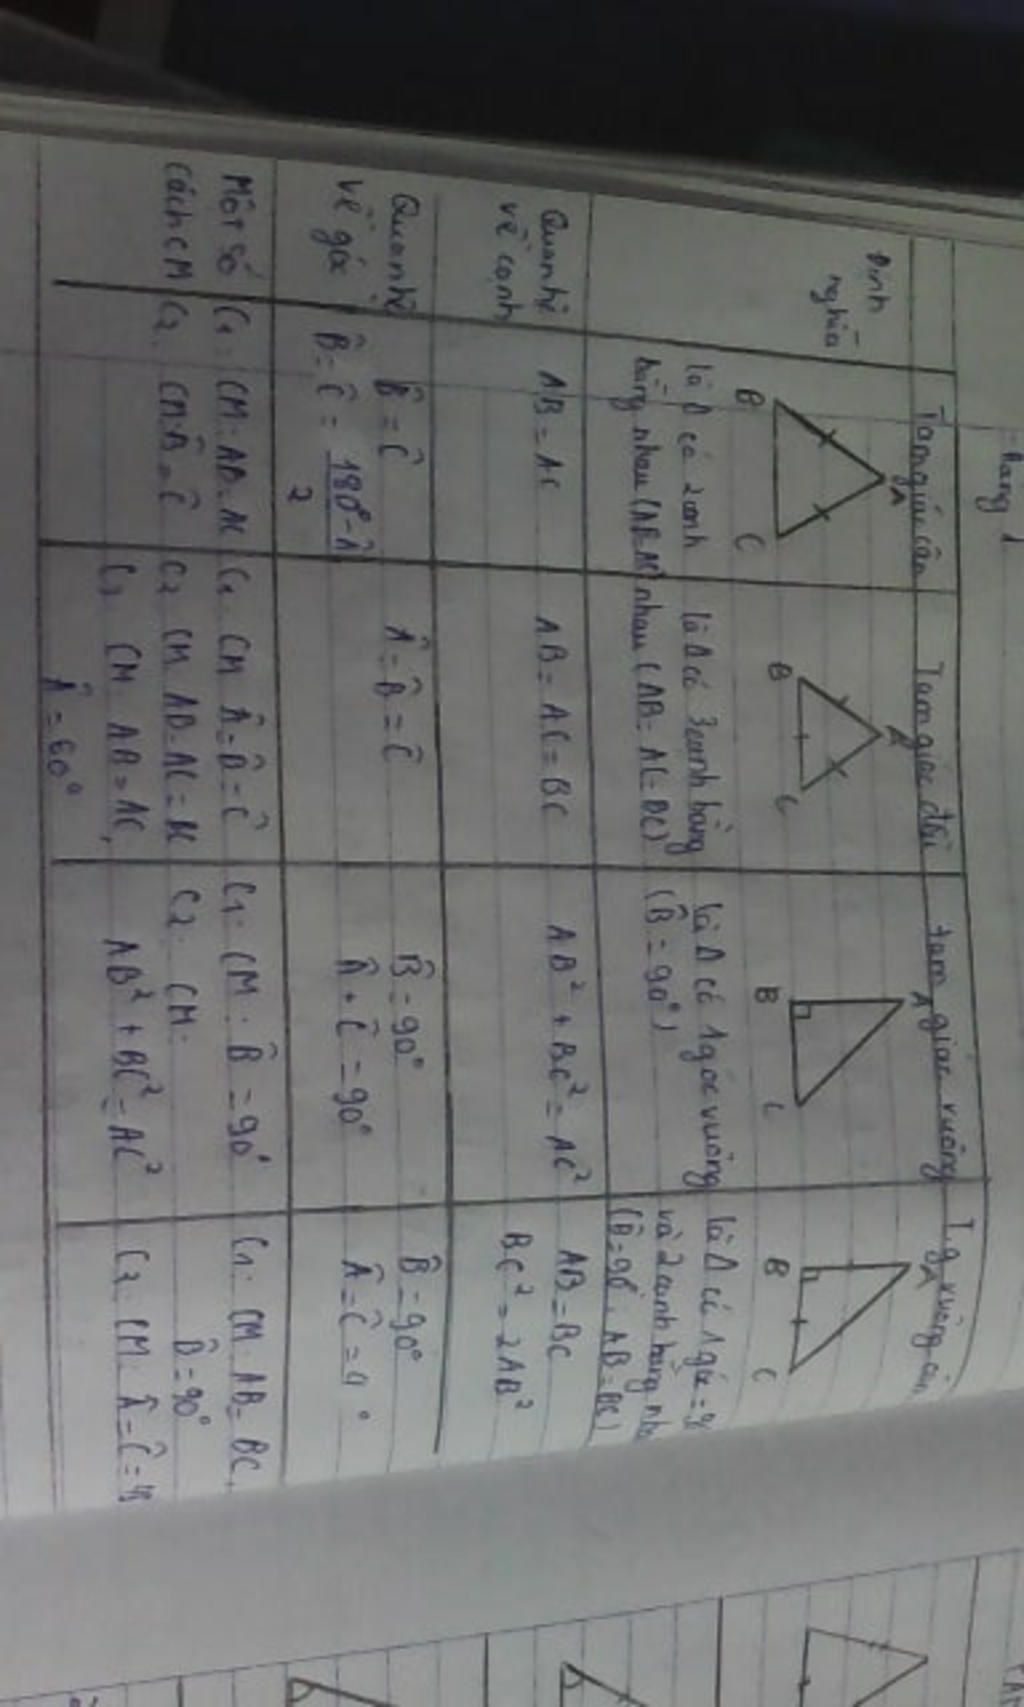 Bảng 1
Tam giác cân
Tam giác đều
Tam giác vuông
T.g vuông cân
Định nghĩa
A
B
C
là Δ có 2 cạnh
bằng nhau (AB=AC)
A
B
C
là Δ có 3 cạnh bằng
nhau (AB = AC = BC)
A
B
C
là Δ có 1 góc vuông
(B̂ = 90°)
A
B
C
là Δ có 1 góc =
và 2 cạnh bằng
(B̂ = 90°, AB = BC)
Quan hệ
về cạnh
AB = AC
AB = AC = BC
AB² + BC² = AC²
AB = BC
BC² = 2AB²
Quan hệ
về góc
B̂ = Ĉ
B̂ = Ĉ = 180° - Â
2
 = B̂ = Ĉ
B̂ = 90°
 + Ĉ = 90°
B̂ = 90°
 = Ĉ = 4 °
Một số
cách CM
C₁: CM: AB = AC
C₂: CM: B̂ = Ĉ
C₁: CM  = B̂ = Ĉ
C₂: CM AB = AC =
C₃ CM AB = AC,
 = 60°
C₁: CM: B̂ = 90°
C₂: CM:
AB² + BC² = AC²
C₁: CM: AB = BC,
B̂ = 90°
C₂: CM:  = Ĉ =